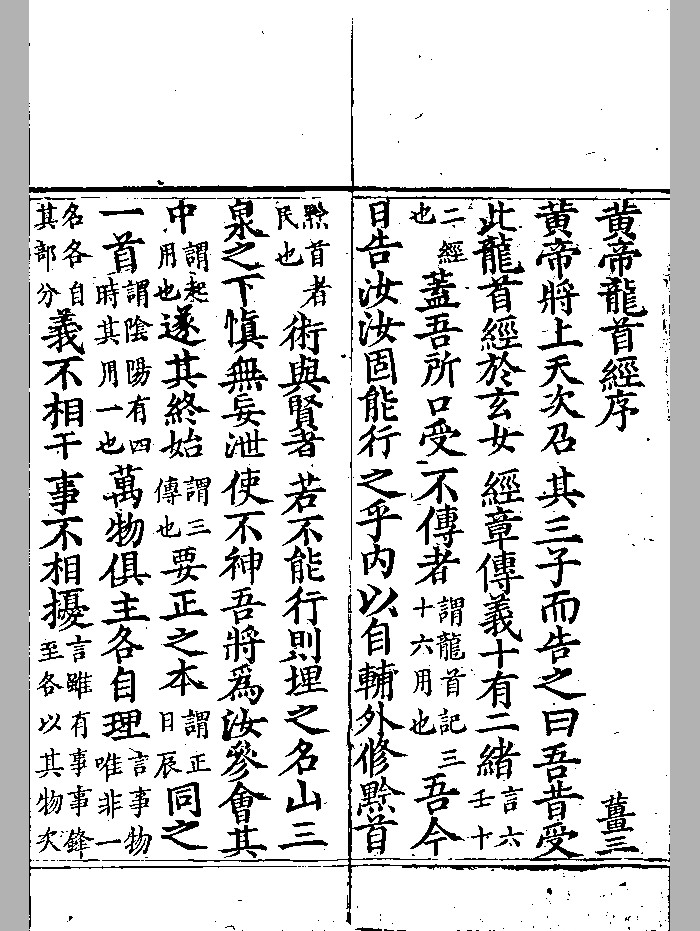 黃帝龍首經序
薑三
黃帝將上天次召其三子而告之曰吾昔受
此龍首經於玄女經章傳義十有二緒言六壬十
二經也蓋吾所口受不傳者謂龍首記三十六用也吾今
日告汝汝固能行之乎內以自輔外修黔首
黔首者民也術與賢者若不能行則埋之名山三
泉之下慎無妄泄使不神吾將為汝參會其
中謂起用也遂其終始謂三傳也要正之本謂正日辰同之
一首謂陰陽有四時其用一也萬物俱主各自理言事物唯非一
名各自其部分義不相干事不相擾言雖有事事鋒至各以其物次